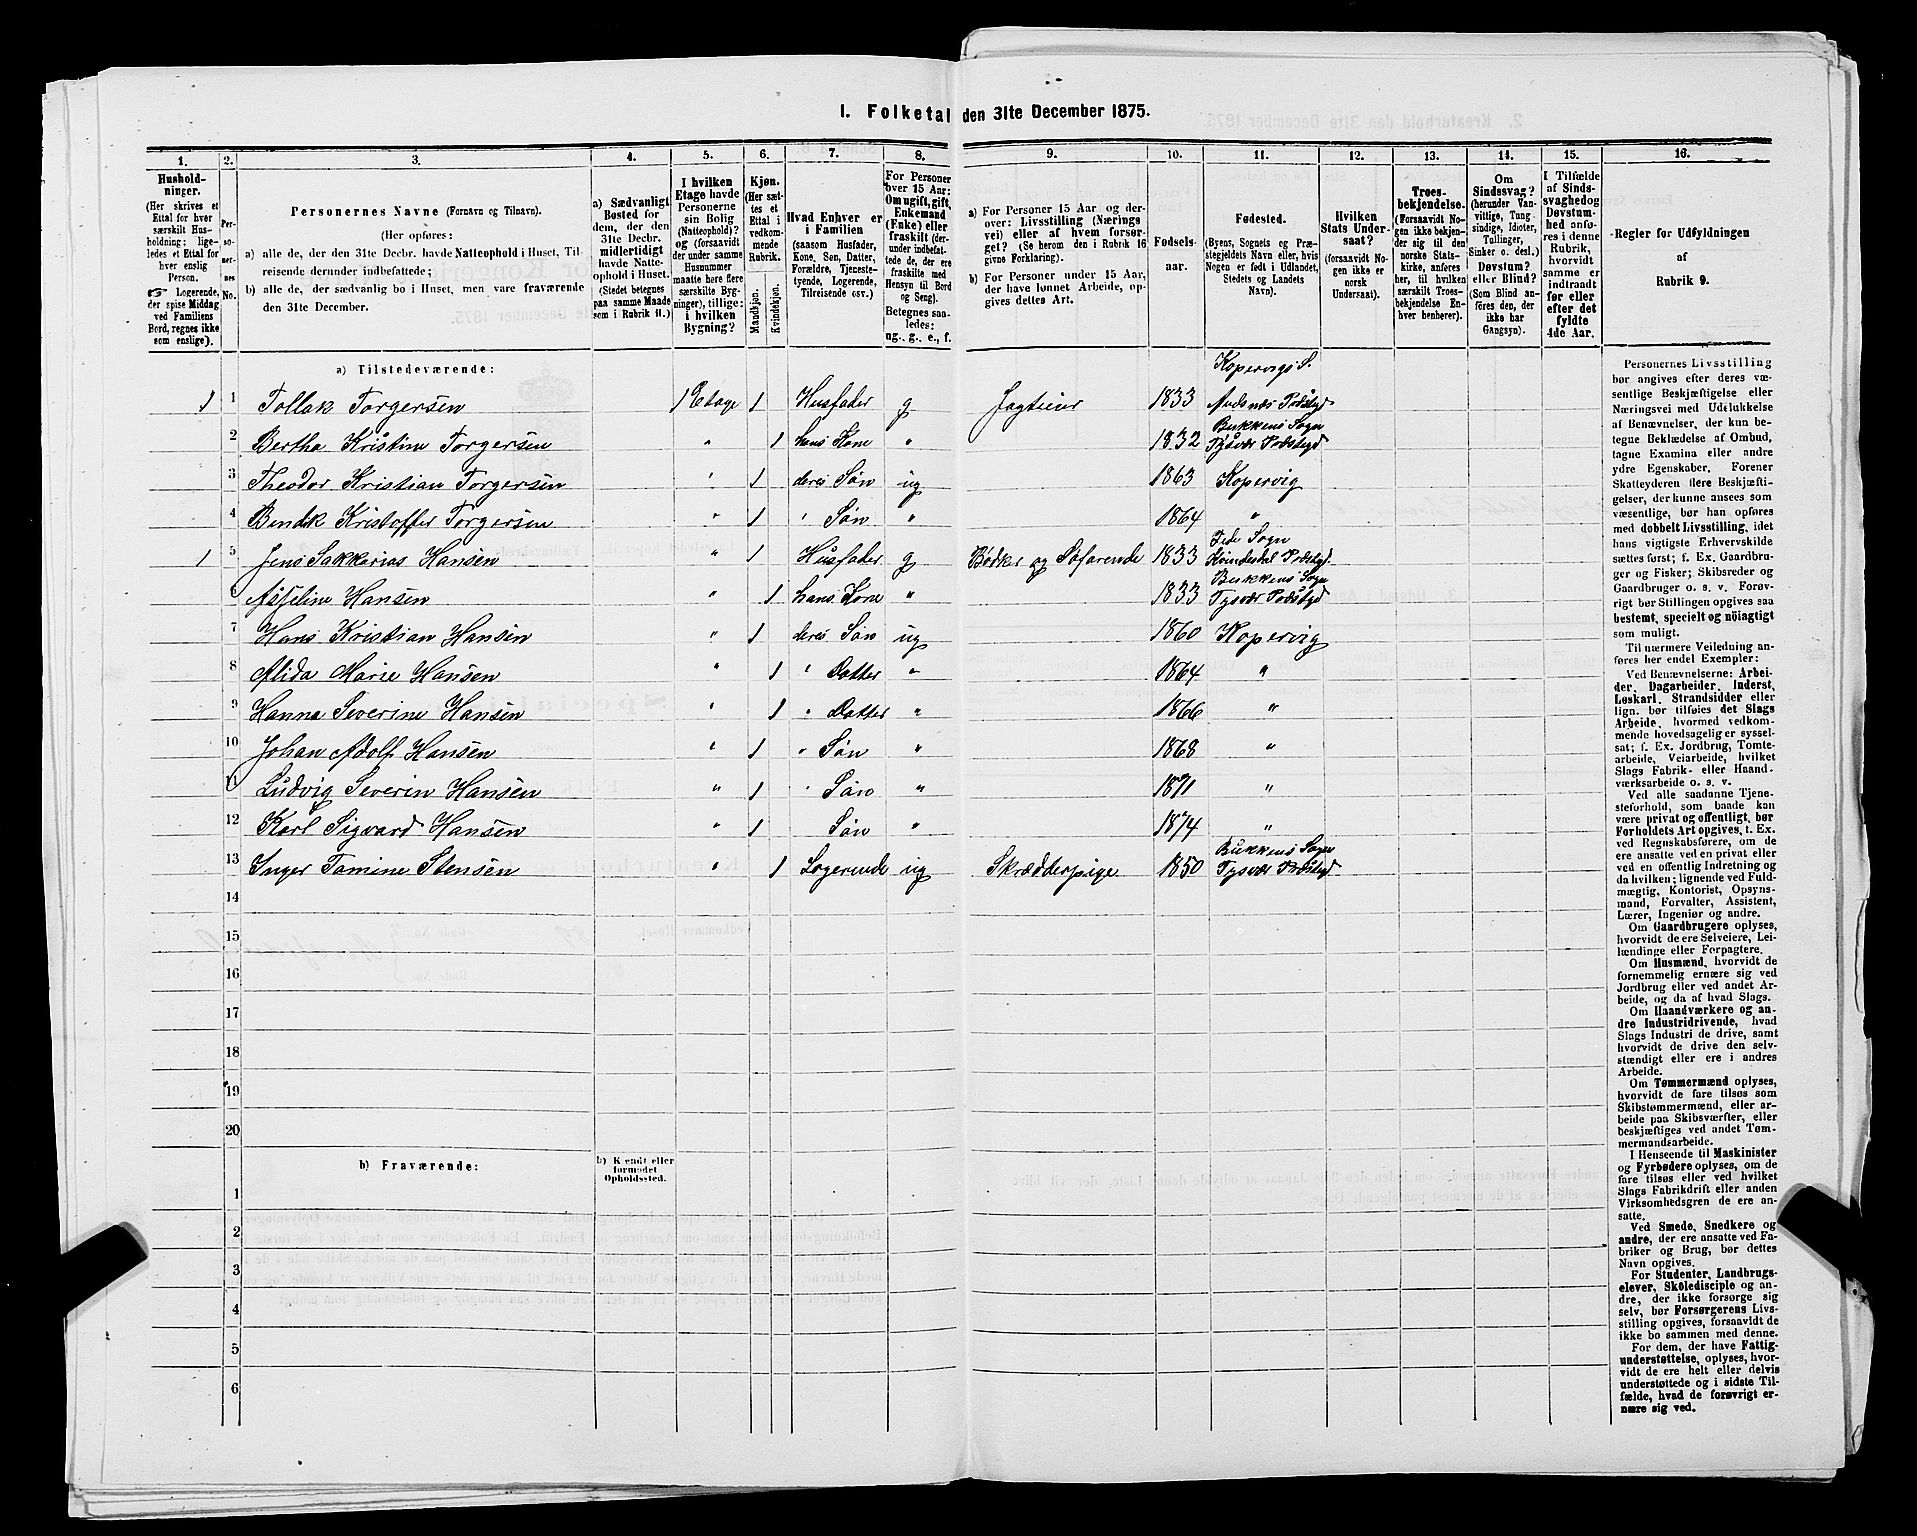 1. Folketal den 31te December 1875.
1. 2. 3. 4. 5. 6. 7. 8. 9. 10. 11. 12. 13. 14. 15. 16.
Husholdninger.
(Her skrives et
Ettal for hver
særskilt Husholdning;
ligeledes et Ettal for
hver enslig
Person.
☞ Logerende,
der spise Middag
ved Familiens
Bord, regnes ikke
som enslige).
Personernes No.
Personernes Navne (Fornavn og Tilnavn).
(Her opføres:
a) alle de, der den 31te Decbr. havde Natteophold i Huset, Tilreisende derunder indbefattede;
b) alle de, der sædvanlig bo i Huset, men vare fraværende
den 31te December.
a) Sædvanligt
Bosted for
dem, der den
31te Decbr.
midlertidigt
havde Natteophold i Huset.
(Stedet betegnes
paa samme Maade
som i Rubrik 11.)
I hvilken
Etage havde
Personerne
sin Bolig
(Natteophold)?
og (forsaavidt
der under samme
Husnummer
maatte høre flere
særskilte Bygninger), tillige:
i hvilken
Bygning?
Kjøn.
(Her sættes et
Ettal i
vedkommende
Rubrik.
Mandkjøn.
Kvindekjøn.
Hvad Enhver er
i Familien
(saasom Husfader,
Kone, Søn, Datter,
Forældre, Tjenestetyende, Logerende,
Tilreisende osv.)
For Personer
over 15 Aar:
Om ugift, gift,
Enkemand
(Enke) eller
fraskilt (derunder indbefattede de, der ere
fraskilte med
Hensyn til Bord
og Seng).
Betegnes saaledes:
ug., g., e., f.
a) For Personer 15 Aar og derover: Livsstilling (Næringsvei) eller af hvem forsørget? (Se herom den i Rubrik 16
givne Forklaring).
b) For Personer under 15 Aar,
der have lønnet Arbeide, opgives dettes Art.
Fødselsaar.
Fødested.
(Byens, Sognets og Præstegjeldets Navn eller, hvis
Nogen er født i Udlandet,
Stedets og Landets
Navn).
Hvilken
Stats Undersaat?
(forsaavidt Nogen ikke er
norsk
Undersaat).
Troesbekjendelse.
(Forsaavidt Nogen ikke bekjender sig til den
norske Statskirke, anføres
her, til hvilken
særskilt Troesbekjendelse Enhver benhører).
Om
Sindssvag?
(herunder Vanvittige, Tungsindige, Idioter,
Tullinger,
Sinker o. desl.)
Døvstum?
eller Blind?
(Som Blind anføres den, der
ikke har
Gangsyn).
I Tilfælde
af Sindssvaghed og
Døvstumhed anføres i denne
Rubrik,
hvorvidt
samme er
indtraadt
før eller
efter det
fyldte
4de Aar.
Regler for Udfyldningen
af
Rubrik 9.
a) Tilstedeværende:
Kopervigs S.
1 1 Tollak Torgersen 1 Etage 1 Husfader g Jagteier 1833 Præstgd
Bukkens Sogn
2 Bertha Kristine Torgersen " 1 hans Kone " 1832 Tysvær Præstgd
3 Theodor Kristian Torgersen " 1 deres Søn ug 1863 Kopervig
4 Bendik Kristoffer Torgersen " 1 " Søn " 1864 "
Fede Sogn
1 5 Jens Sakkarias Hansen " 1 Husfader g Bødker og Søfarende 1833 Kvindesdal Præstgd
Bukkens Sogn
6 Asseline Hansen " 1 hans Kone " 1833 Tysvær Præstgd
7 Hans Kristian Hansen " 1 deres Søn ug 1860 Kopervig
8 Alida Marie Hansen " 1 " Datter " 1864 "
9 Hanna Severine Hansen " 1 " Datter " 1866 "
10 Johan Adolf Hansen " 1 " Søn " 1868 "
11 Ludvig Severin Hansen " 1 " Søn " 1871 "
12 Karl Sigvard Hansen " 1 Søn " 1874 "
Bukkens Sogn
13 Inger Tamine Stensen " 1 Logerende ug Skrædderpige 1850 Tysvær Præstgd
14
15
16
17
18
19
20
b) Fraværende:
b) Kjendt eller
formodet
Opholdssted.
1
2
3
4
5
6
Personernes Livsstilling
bør angives efter deres væsentlige Beskjæftigelse eller
Næringsvei med Udelukkelse
af Benævnelser, der kun betegne Beklædelse af Ombud,
tagne Examina eller andre
ydre Egenskaber. Forener
Skatteyderen flere Beskjæftigelser, der kunne ansees som
væsentlige, bør han opføres
med dobbelt Livsstilling, idet
hans vigtigste Erhvervskilde
sættes først; f. Ex. Gaardbruger og Fisker; Skibsreder og
Gaardbruger o. s. v. Forøvrigt bør Stillingen opgives saa
bestemt, specielt og nöiagtigt
som muligt.
Til nærmere Veiledning anføres her endel Exempler:
Ved Benævnelserne: Arbeider, Dagarbeider, Inderst,
Løskarl, Strandsidder eller
lign. bør tilføies det Slags
Arbeide, hvormed vedkommende hovedsagelig er sysselsat; f. Ex. Jordbrug, Tomtearbeide, Veiarbeide, hvilket
Slags Fabrik- eller Haandværksarbeide o. s. v.
Ved alle saadanne Tjenesteforhold, som baade kan
være privat og offentligt, bør
Forholdets Art opgives, t. Ex.
ved Regnskabsførere, om de
ere ansatte ved en privat eller
ved en offentlig Indretning og
da hvilken; lignende ved Fuldmægtig, Kontorist, Opsynsmand, Forvalter, Assistent,
Lærer, Ingeniør og andre.
Om Gaardbrugere oplyses,
hvorvidt de ere Selveiere, Leilændinge eller Forpagtere.
Om Husmænd, hvorvidt de
fornemmelig ernære sig ved
Jordbrug eller ved andet Arbeide, og da af hvad Slags.
Om Haandværkere og andre Industridrivende, hvad
Slags Industri de drive, samt
hvorvidt de drive den selvstændigt eller ere i andres
Arbeide.
Om Tømmermænd oplyses,
hvorvidt de fare tilsøs som
Skibstømmermænd, eller arbeide paa Skibsværfter, eller
beskjæftiges ved andet Tømmermandsarbeide.
I Henseende til Maskinister
og Fyrbødere oplyses, om de
fare tilsøs eller ved hvilket
Slags Fabrikdrift eller anden
Virksomhedsgren de ere ansatte.
Ved Smede, Snedkere og
andre, der ere ansatte ved Fabriker og Brug, bør dettes
Navn opgives.
For Studenter, Landbrugselever, Skoledisciple og andre, der ikke forsørge sig
selv, bør Forsørgerens Livsstilling opgives, forsaavidt de
ikke bo sammen med denne.
For dem, der have Fattigunderstøttelse, oplyses, hvorvidt de ere helt eller delvis
understøttede og i sidste Tilfælde, hvad de forøvrigt ernære sig ved.